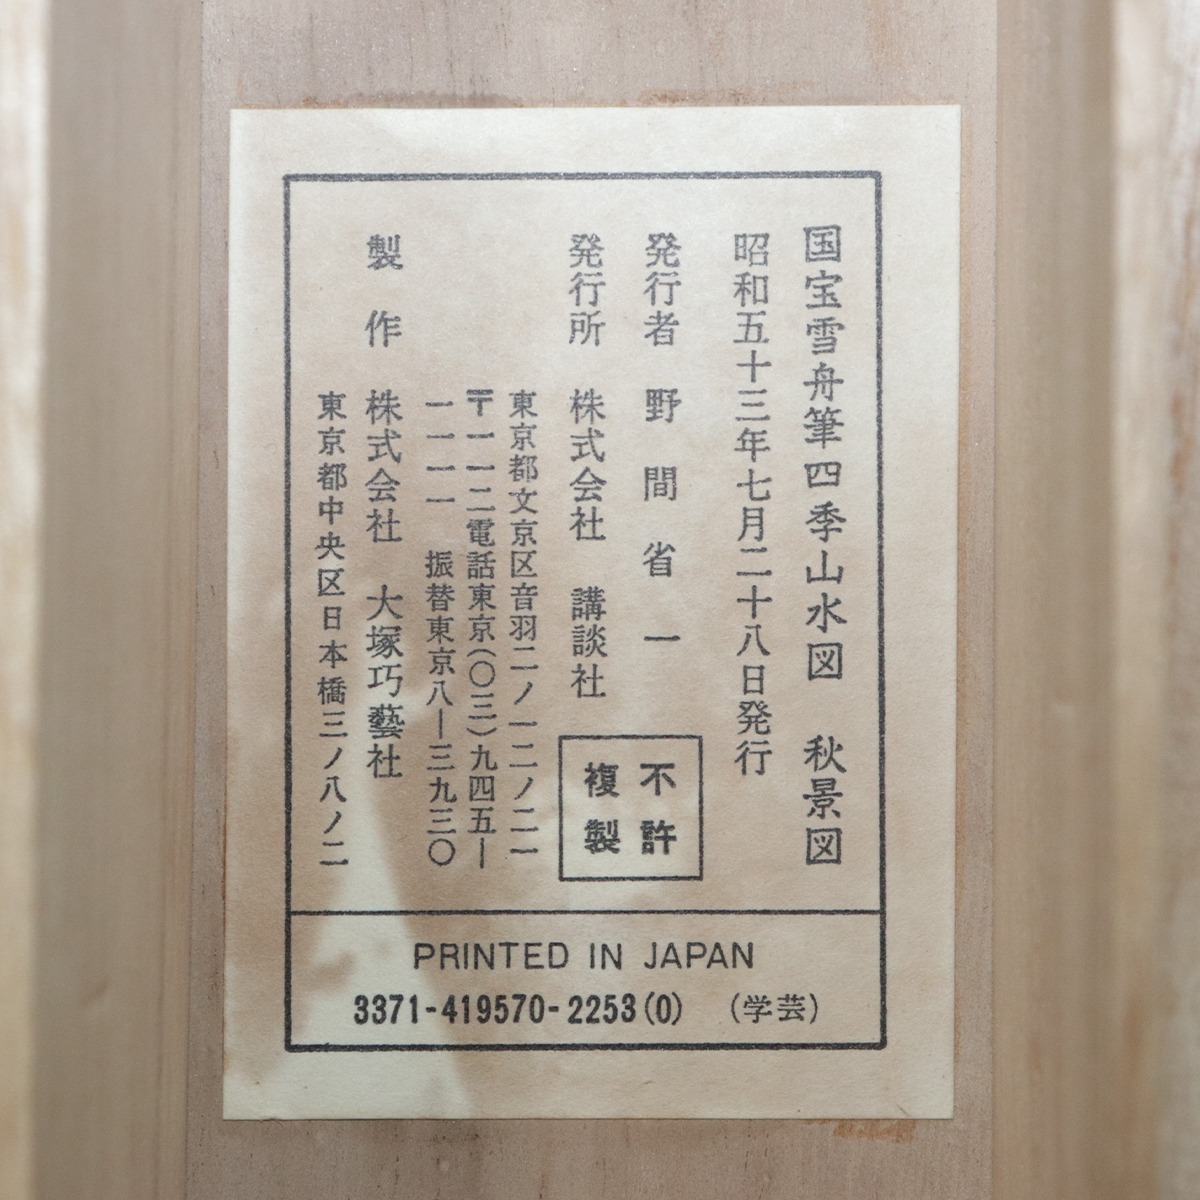 国宝雪舟筆四季山水図　秋景図
昭和五十三年七月二十八日発行
発行者　野間省一
発行所　株式会社　講談社
東京都文京区音羽二ノ一二ノ二一
〒一一二電話東京(〇三)九四五ー
一一一一　振替東京八ー三九三〇
製作　株式会社　大塚巧藝社
東京都中央区日本橋三ノ八ノ二
不許
複製
PRINTED IN JAPAN
3371-419570-2253(0)　(学芸)